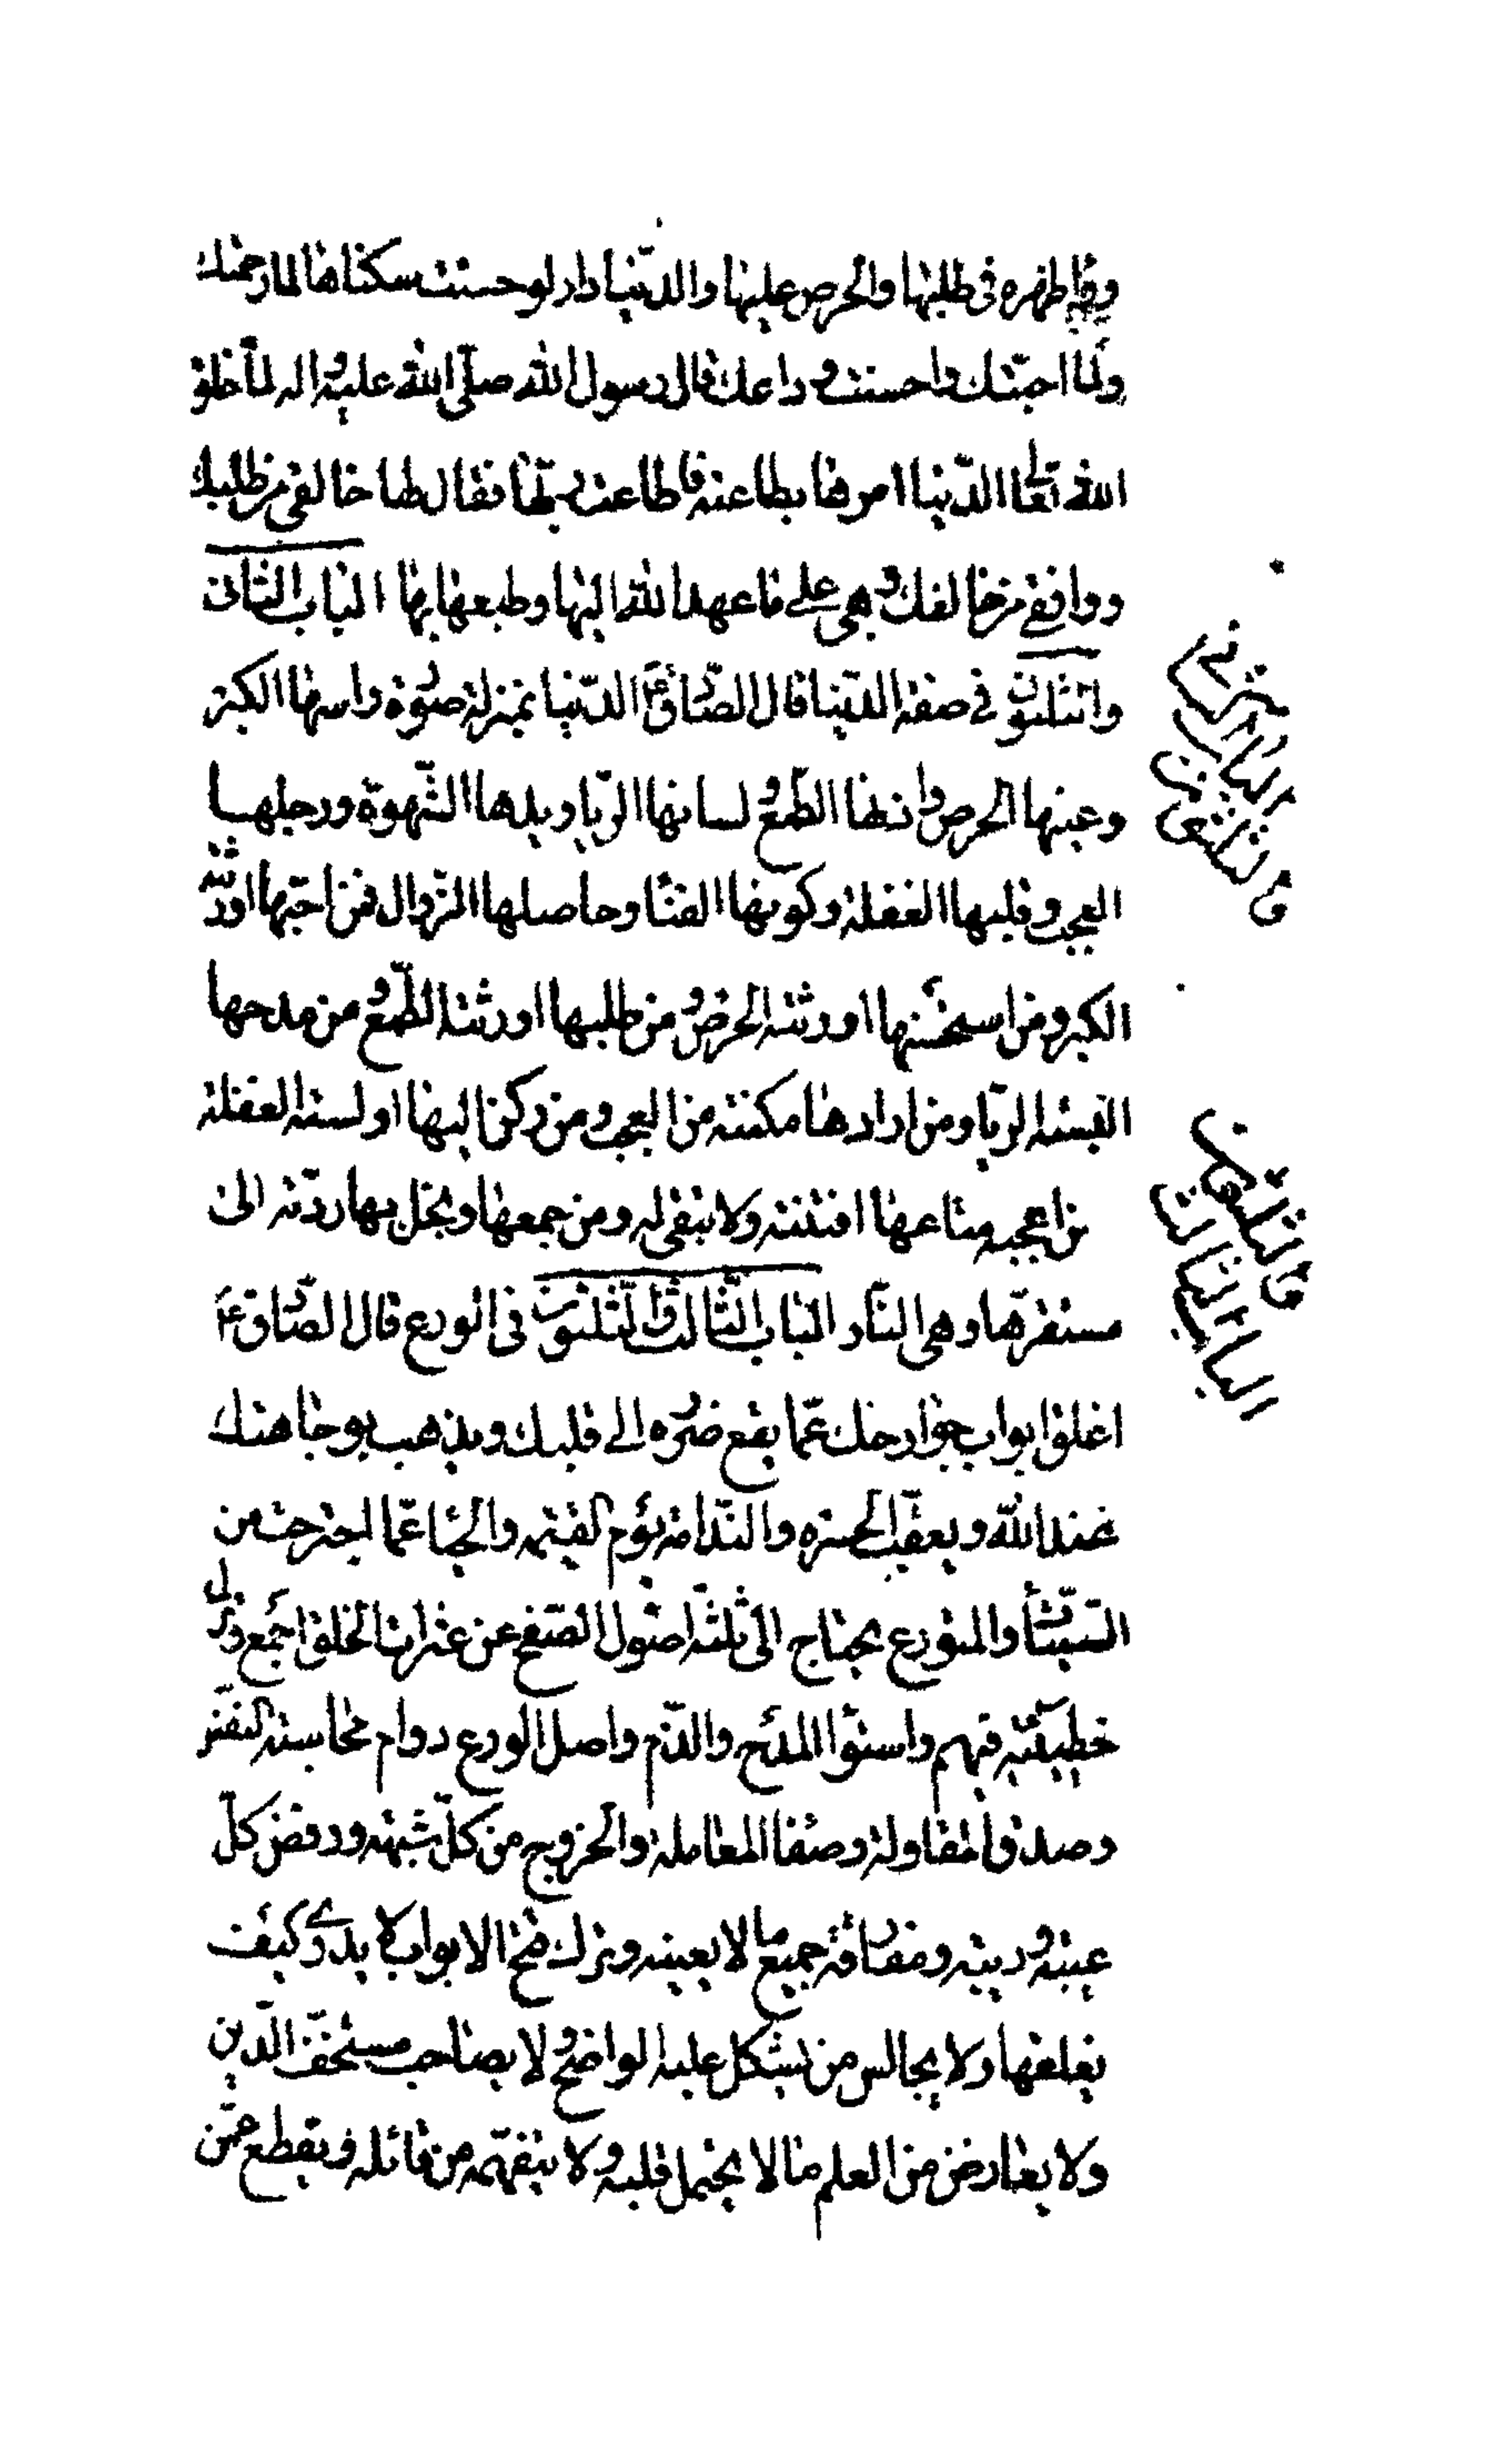 وقد اظهره فى طلبها والحرص عليها والدّنيا دار لو حسنت سكناها لما رحمتك
ولما احبّتك واحسنت وداعك قال رسول الله صلّى الله عليه واله لمّا خلق
الله تعالى الدّنيا امرها بطاعته فاطاعت ربّها فقال لها خالفى من طلبك
ووافقى من خالفك وهى على ما عهد الله اليها وطبعها بها الباب الثانى
والثلثون فى صفة الدّنيا قال الصّادق ع الدّنيا بمنزلة صورة راسها الكبر
وعينها الحرص واذنها الطّمع ولسانها الريا ويدها الشّهوة ورجلها
العجب وقلبها الغفلة وكونها الفنا وحاصلها الزّوال فمن احبّها اورثته
الكبر ومن استحسنها اورثته الحرص ومن طلبها اورثته الطّمع ومن مدحها
البسته الريا ومن ارادها مكنته من العجب ومن ركن اليها اولسته الغفلة
من اعجبه متاعها افتنته ولا تبقى له ومن جمعها وبخل بها ردّته الى
مستقرّها وهى النّار الباب الثّالث والثّلثون فى الورع قال الصّادق ع
اغلق ابواب جوارحك عمّا يقع ضرّه الى قلبك ويذهب بوجاهتك
عند الله ويعقب الحسره والنّدامة يوم القيمة والحيا عمّا اجترحت من
السّيّئات والمتورع يحتاج الى ثلثة اصول الصّفح عن عثرات الخلق اجمع وترك
خطيئته فيهم واستواء المدح والذّم واصل الورع دوام محاسبة النفس
وصدق المقاولة وصفا المعاملة والخروج من كلّ شبهة ورفض كلّ
عيبة وريبة ومفارقة جميع ما لا يعينه وترك فتح الابواب لا يدرى كيف
يغلقها ولا يجالس من يشكل عليه الواضح ولا يصاحب مستخفّ الدّين
ولا يعارض من العلم ما لا يحتمل قلبه ولا يتفهّمه من قائله ويقطع عمّن
الباب
والثلثون
الباب الثالث
والثلثون